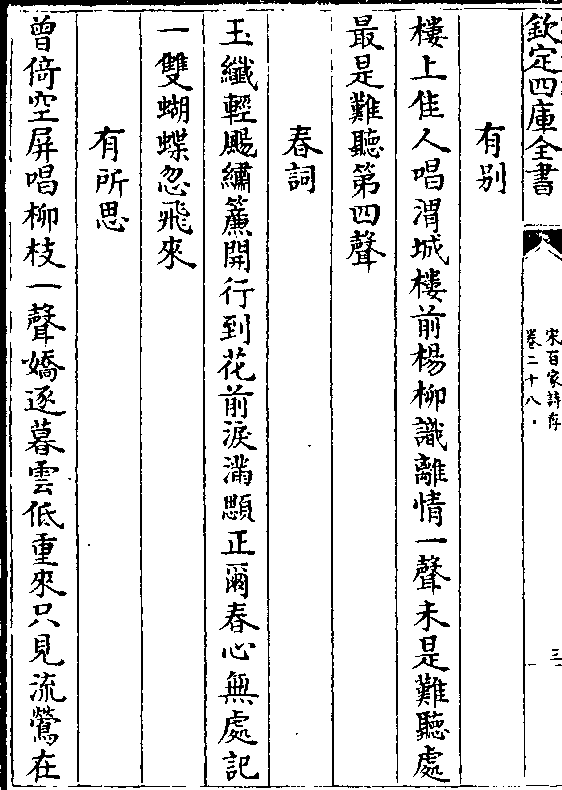 欽定四庫全書
宋百家詩存
卷二十八
三
有别
樓上佳人唱渭城樓前楊柳識離情一聲未是難聽處
最是難聽第四聲
春詞
玉纖輕颺繡簾開行到花前淚滿顋正爾春心無處記
一雙蝴蝶忽飛來
有所思
曾倚空屏唱柳枝一聲嬌逐暮雲低重來只見流鶯在